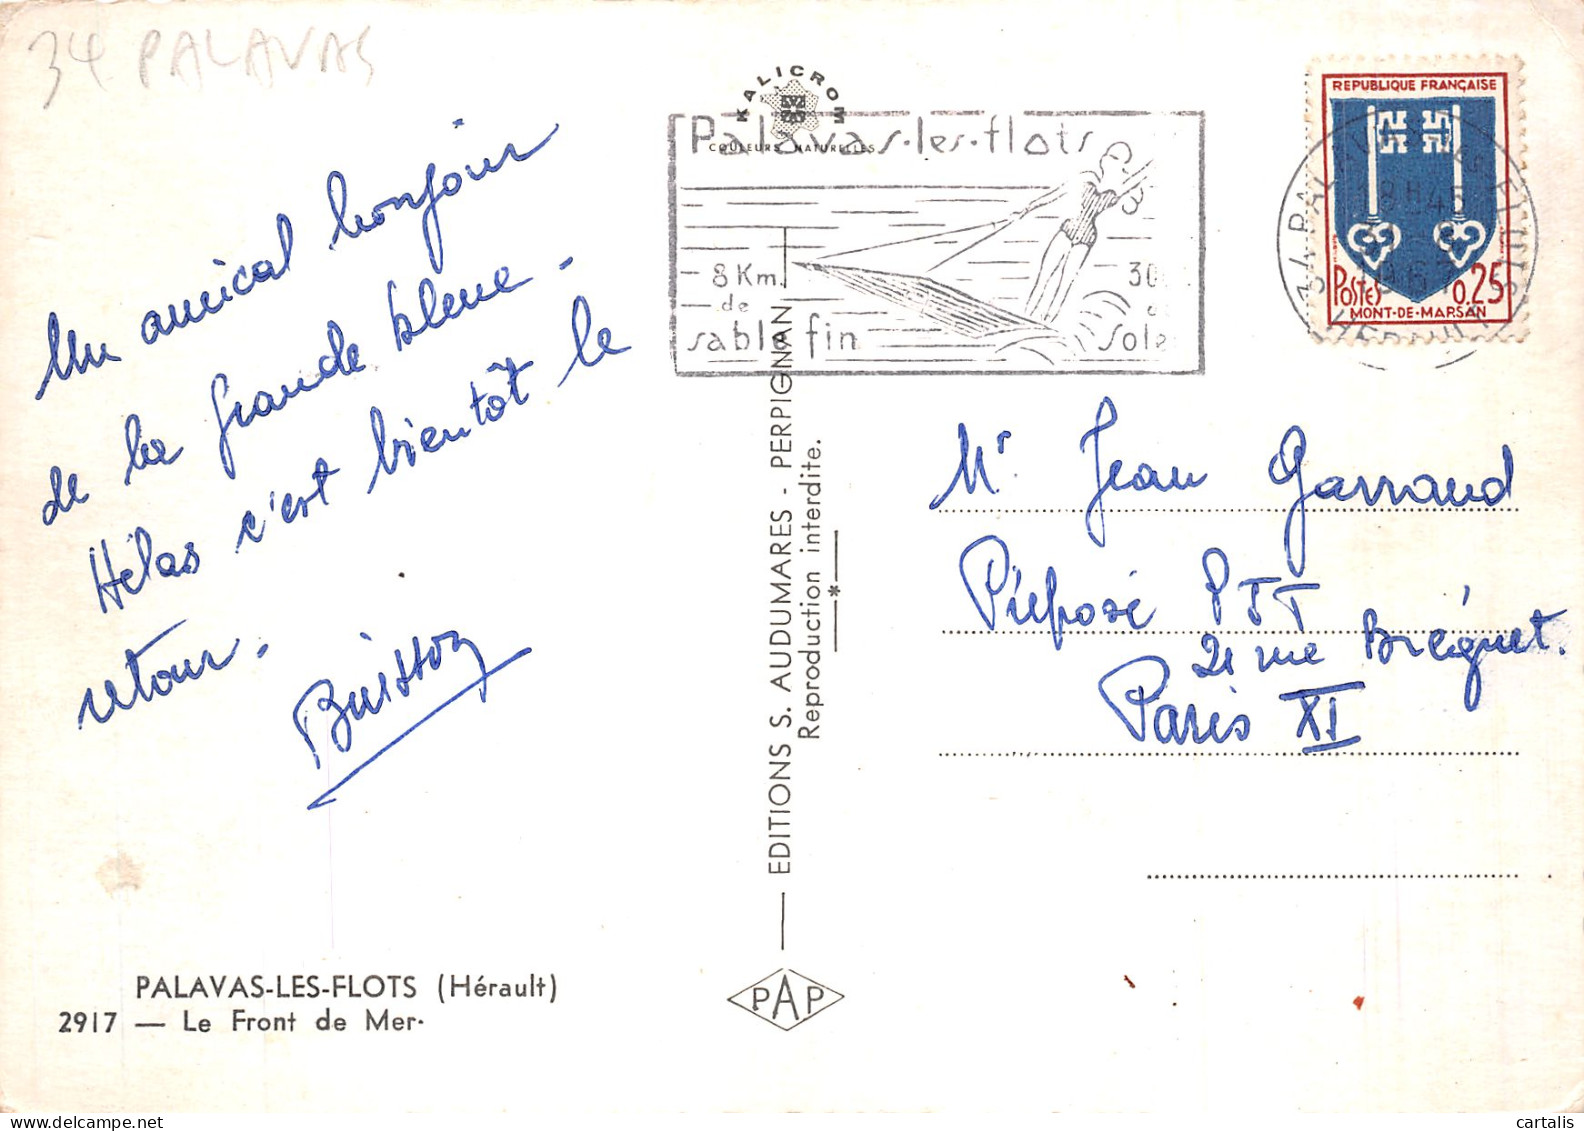 34 PALAVAS
Un amical bonjour
de la grande bleue.
Hélas c'est bientôt le
retour.
Buisson
PALAVAS-LES-FLOTS (Hérault)
2917 — Le Front de Mer.
KALICROM
COULEURS NATURELLES
Palavas-les-flots
8 Km.
de
sable fin
EDITIONS S. AUDUMARES - PERPIGNAN
Reproduction interdite.
PAP
REPUBLIQUE FRANÇAISE
POSTES 0.25
MONT-DE-MARSAN
34 PALAVAS
18H45
1967
HERAULT
Mr Jean Garraud
Préposé PTT
21 rue Bréguet.
Paris XI
cartalis